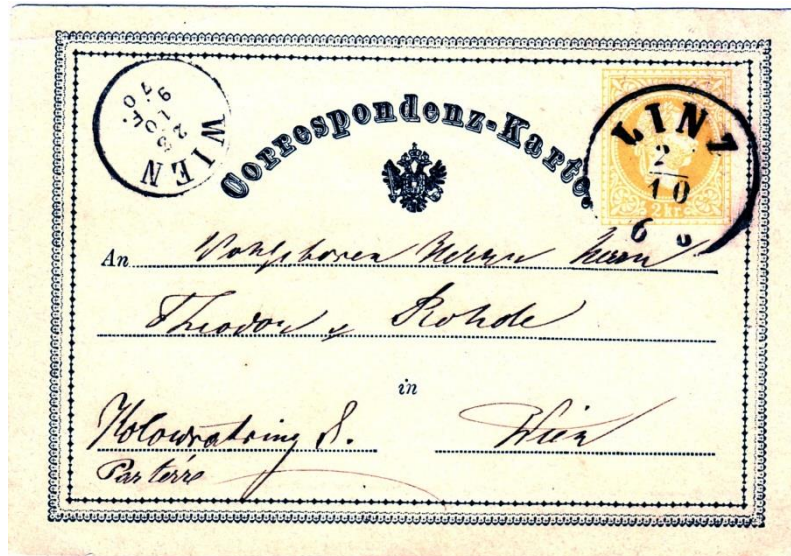 WIEN
Correspondenz-Karte.
LINZ
2
10
6
2 kr.
An Wohlgeboren Herrn Herrn
Theodor Rohde
in
Kolowratring 8. Wien
Parterre